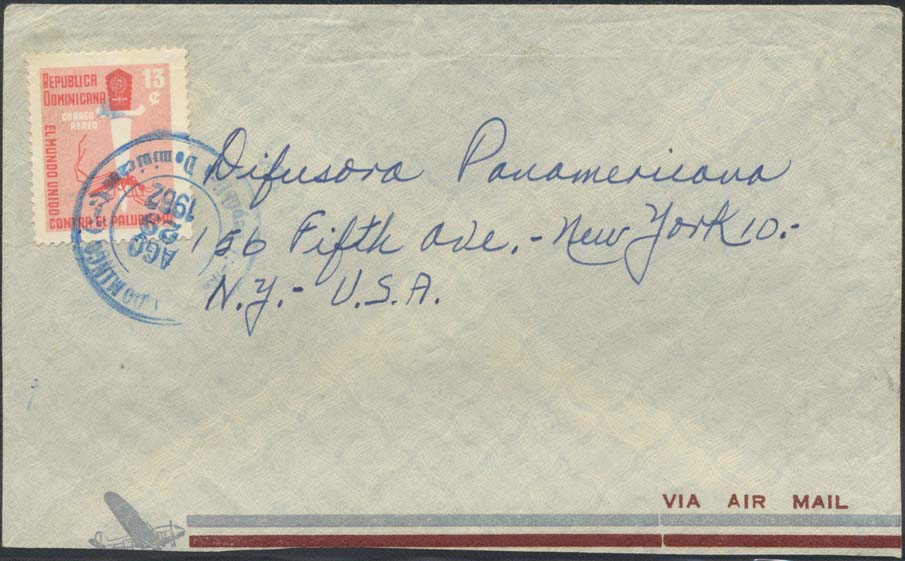 REPUBLICA DOMINICANA
13 ¢
CORREO AEREO
EL MUNDO UNIDO
CONTRA EL PALUDISMO
Dominicana
DOMINGO
AGO
1962
Difusora Panamericana
156 Fifth Ave.-New York 10.-
N.Y.- U.S.A.
VIA AIR MAIL